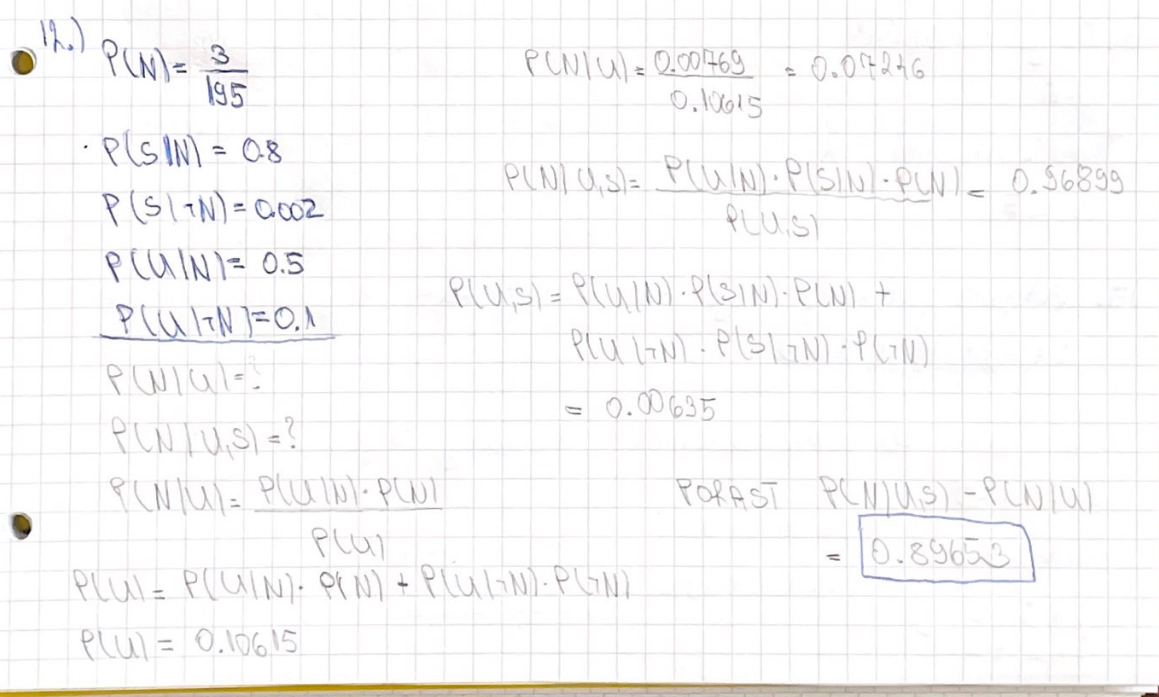 12.)
P(N) = 3/195
P(S|N) = 0.8
P(S|¬N) = 0.002
P(U|N) = 0.5
P(U|¬N) = 0.1
P(N|U) = ?
P(N|U,S) = ?
P(N|U) = P(U|N)·P(N) / P(U)
P(U) = P(U|N)·P(N) + P(U|¬N)·P(¬N)
P(U) = 0.10615
P(N|U) = 0.00769/0.10615 = 0.07246
P(N|U,S) = P(U|N)·P(S|N)·P(N) / P(U,S) = 0.96899
P(U,S) = P(U|N)·P(S|N)·P(N) +
P(U|¬N)·P(S|¬N)·P(¬N)
= 0.00635
PORAST P(N|U,S) - P(N|U)
= 0.89653